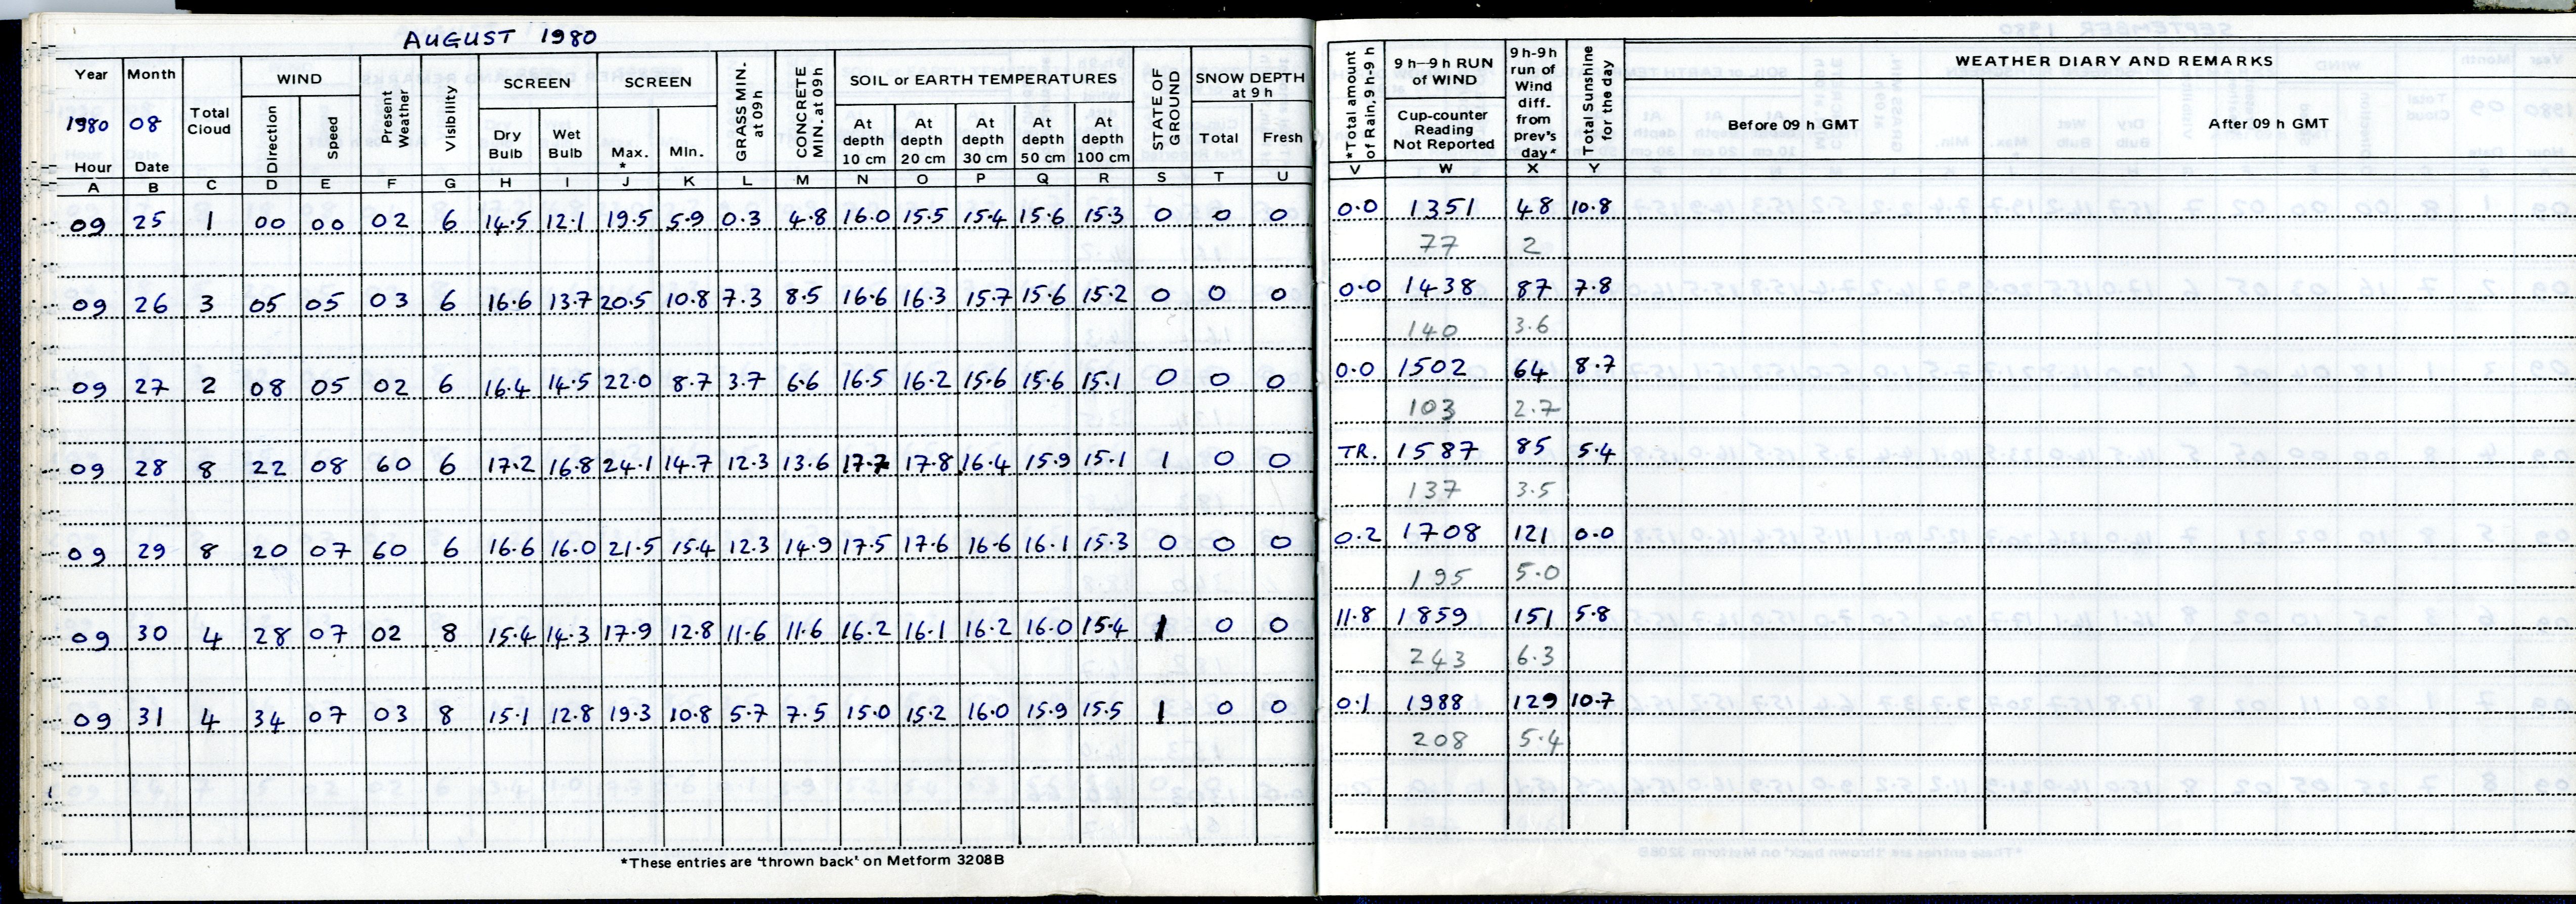 AUGUST 1980
Year Month Total Cloud WIND Direction Speed Present Weather Visibility SCREEN Dry Bulb Wet Bulb SCREEN Max. * Min. GRASS MIN. at 09h CONCRETE MIN. at 09h SOIL or EARTH TEMPERATURES At depth 10 cm At depth 20 cm At depth 30 cm At depth 50 cm At depth 100 cm STATE OF GROUND SNOW DEPTH at 9h Total Fresh
1980 08
Hour Date
A B C D E F G H I J K L M N O P Q R S T U
09 25 1 00 00 02 6 14.5 12.1 19.5 5.9 0.3 4.8 16.0 15.5 15.4 15.6 15.3 0 0 0
09 26 3 05 05 03 6 16.6 13.7 20.5 10.8 7.3 8.5 16.6 16.3 15.7 15.6 15.2 0 0 0
09 27 2 08 05 02 6 16.4 14.5 22.0 8.7 3.7 6.6 16.5 16.2 15.6 15.6 15.1 0 0 0
09 28 8 22 08 60 6 17.2 16.8 24.1 14.7 12.3 13.6 17.7 17.8 16.4 15.9 15.1 1 0 0
09 29 8 20 07 60 6 16.6 16.0 21.5 15.4 12.3 14.9 17.5 17.6 16.6 16.1 15.3 0 0 0
09 30 4 28 07 02 8 15.4 14.3 17.9 12.8 11.6 11.6 16.2 16.1 16.2 16.0 15.4 1 0 0
09 31 4 34 07 03 8 15.1 12.8 19.3 10.8 5.7 7.5 15.0 15.2 16.0 15.9 15.5 1 0 0
*These entries are 'thrown back' on Metform 3208B
*Total amount of Rain, 9h-9h 9h—9h RUN of WIND Cup-counter Reading Not Reported 9h-9h run of Wind diff. from prev's day* Total Sunshine for the day WEATHER DIARY AND REMARKS
Before 09 h GMT After 09 h GMT
V W X Y
0.0 1351 48 10.8
77 2
0.0 1438 87 7.8
140 3.6
0.0 1502 64 8.7
103 2.7
TR. 1587 85 5.4
137 3.5
0.2 1708 121 0.0
195 5.0
11.8 1859 151 5.8
243 6.3
0.1 1988 129 10.7
208 5.4